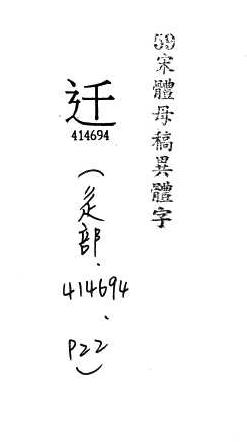 59宋體母稿異體字
迁
414694
(辵部.414694、P22)